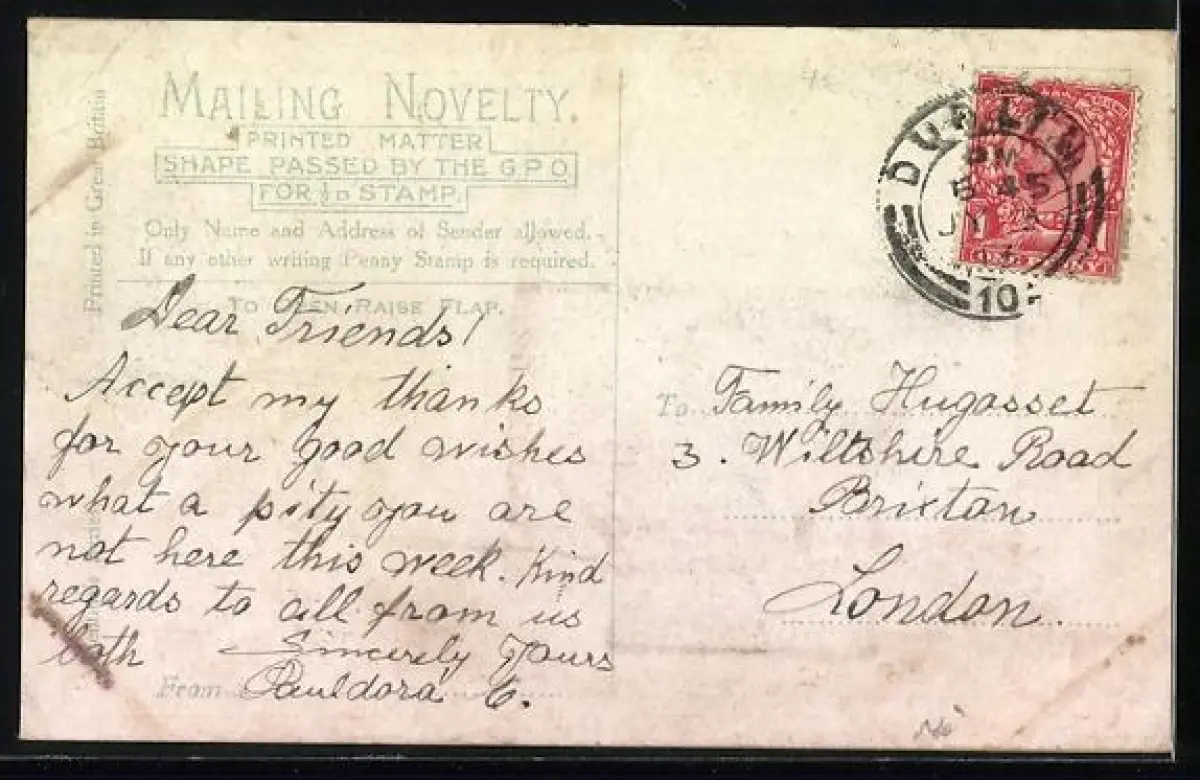 Printed in Great Britain
MAILING NOVELTY.
PRINTED MATTER
SHAPE PASSED BY THE G P O
FOR ½D STAMP.
Only Name and Address of Sender allowed.
If any other writing Penny Stamp is required.
TO OPEN RAISE FLAP.
Dear Friends!
Accept my thanks
for your good wishes
what a pity you are
not here this week. Kind
regards to all from us
both Sincerely Yours
From Pauldora C.
DUBLIN
PM
45
JY
10
To Family Hugosset
3. Wiltshire Road
Brixton
London.